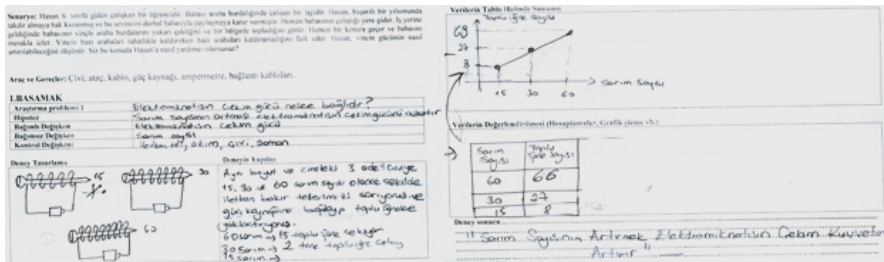 Senaryo: Hasan 6. sınıfa giden çalışkan bir öğrencidir. Babası araba hurdalığında çalışan bir işçidir. Hasan, başarılı bir yılsonunda
takdir almaya hak kazanmış ve bu sevincini derhal babasıyla paylaşmaya karar vermiştir. Hemen babasının çalıştığı yere gider. İş yerine
geldiğinde babasının vinçle araba hurdalarını yukarı çektiğini ve bir bölgede topladığını görür. Hemen bir kenara geçer ve babasını
merakla izler. Vincin bazı arabaları rahatlıkla kaldırırken bazı arabaları kaldıramadığını fark eder. Hasan, vincin gücünün nasıl
artırılabileceğini düşünür. Siz bu konuda Hasan'a nasıl yardımcı olursunuz?
Araç ve Gereçler: Çivi, ataç, kablo, güç kaynağı, ampermetre, bağlantı kabloları.
I.BASAMAK
Araştırma problemi 1 Elektromıknatısın çekim gücü nelere bağlıdır?
Hipotez Sarım sayısının artması elektromıknatısın çekim gücünü
Bağımlı Değişken Elektromıknatısın çekim gücü
Bağımsız Değişken Sarım sayısı
Kontrol Değişkeni akım, çivi, zaman
Deney Tasarlama
15
30
60
Deneyin Yapılışı
Aynı boyut ve cinsteki 3 adet çiviye
15, 30 ve 60 sarım sayısı olacak şekilde
iletken bakır tellerimizi sarıyoruz ve
güç kaynağına bağlayıp toplu iğnelere
yaklaştırıyoruz.
60 sarım → 15 toplu iğne çekiyor
30 sarım → 2 tane toplu iğne
15 sarım →
Verilerin Tablo Halinde Sunumu
Toplu iğne sayısı
27
8
15 30 60
Sarım Sayısı
Verilerin Değerlendirilmesi (Hesaplamalar, Grafik
Sarım Sayısı Toplu iğne sayısı
60 66
30 27
15 8
Deney sonucu
"Sarım Sayısını Artırmak Elektromıknatısın Çekim Kuvvetini
Artırır"